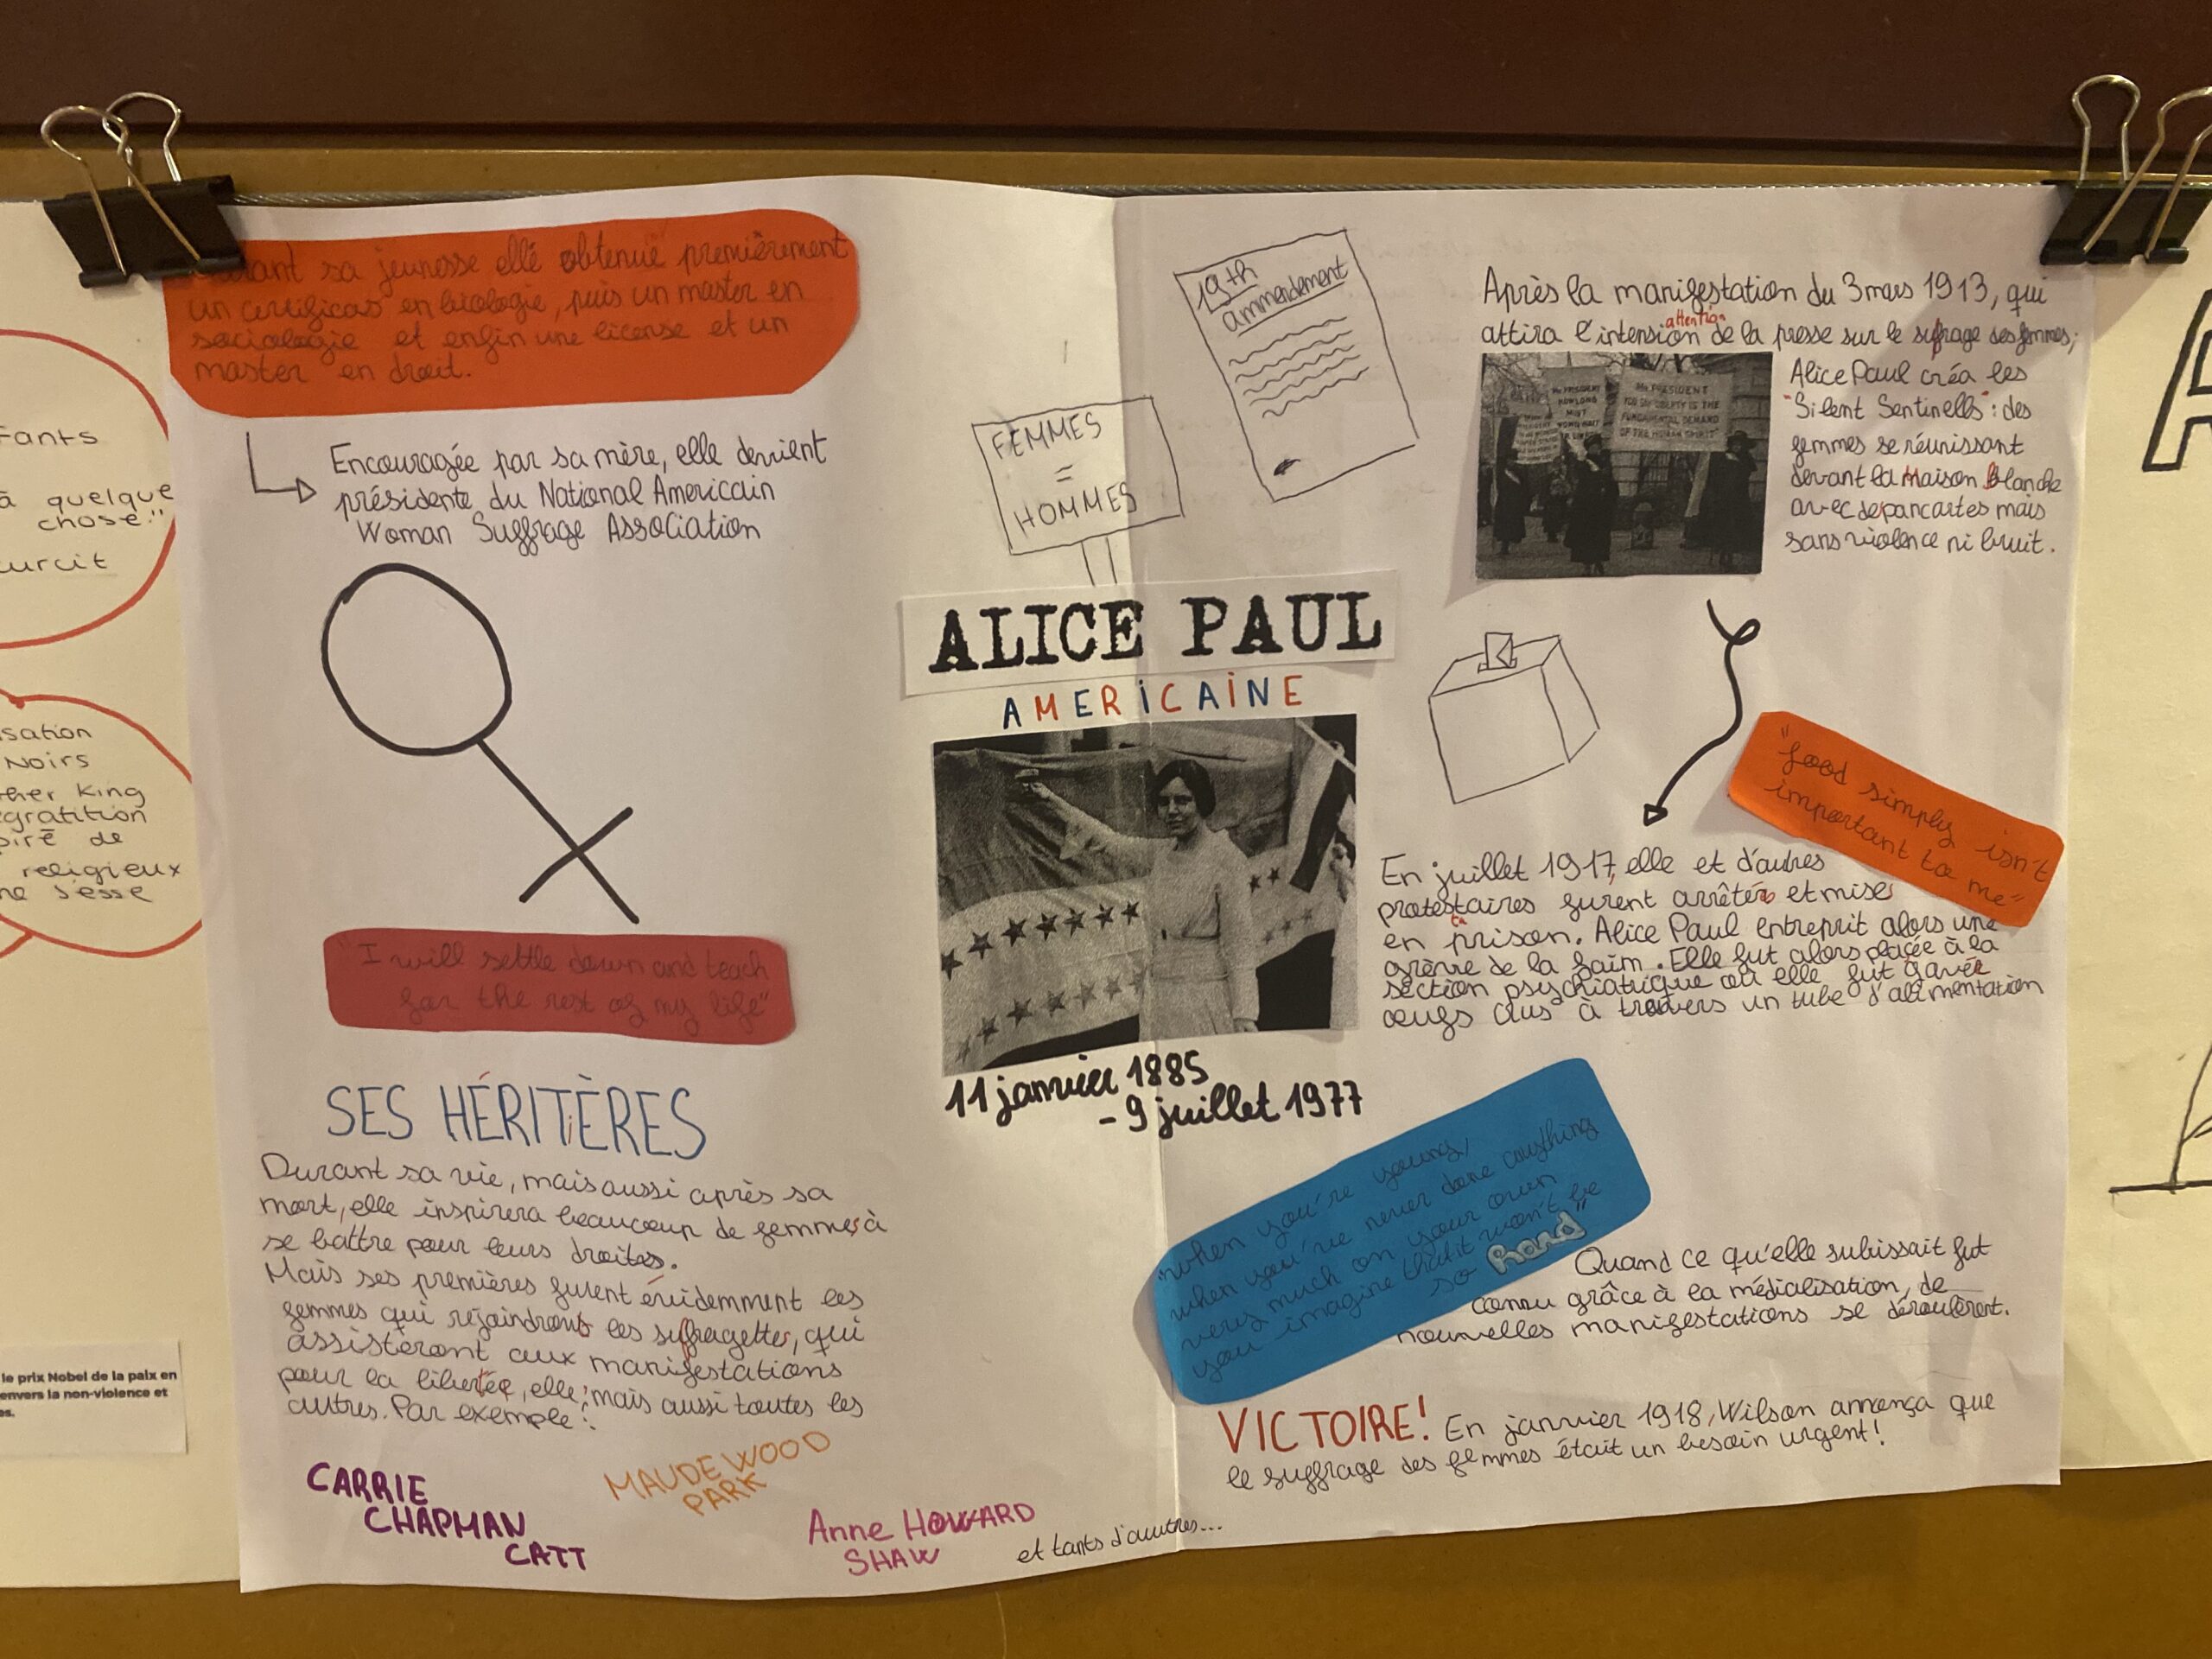 Durant sa jeunesse elle obtenue premièrement
un certificas en biologie, puis un master en
sociologie et enfin une license et un
master en droit.
Encouragée par sa mère, elle devient
présidente du National Americain
Woman Suffrage Association
"I will settle down and teach
for the rest of my life"
SES HÉRITIÈRES
Durant sa vie, mais aussi après sa
mort, elle inspirera beaucoup de femmes à
se battre pour leurs droites.
Mais ses premières furent évidemment les
femmes qui rejoindront les suffragettes, qui
assisteront aux manifestations
pour la liberté, elle; mais aussi toutes les
autres. Par exemple:
CARRIE
CHAPMAN
CATT
MAUDE WOOD
PARK
Anne HOWARD
SHAW
et tants d'autres...
19th
ammendement
FEMMES
=
HOMMES
ALICE PAUL
AMERICAINE
11 janvier 1885
- 9 juillet 1977
Après la manifestation du 3 mars 1913, qui
attention
attira l'intension de la presse sur le suffrage des femmes,
MR PRESIDENT
HOW LONG
MUST
WOMEN WAIT
MR PRESIDENT
YOU SAY LIBERTY IS THE
FUNDAMENTAL DEMAND
OF THE HUMAN SPIRIT
Alice Paul créa les
"Silent Sentinells": des
femmes se réunissant
devant la Maison Blanche
avec des pancartes mais
sans violence ni bruit.
"food simply isn't
important to me"
En juillet 1917, elle et d'autres
protestaires furent arrêtés et mises
en prison. Alice Paul entreprit alors une
grève de la faim. Elle fut alors placée à la
section psychiatrique où elle fut gavée
œufs crus à travers un tube d'alimentation
"When you're young,
when you've never done anything
very much on your own
you imagine that it won't be
so hard"
Quand ce qu'elle subissait fut
connu grâce à la médialisation, de
nouvelles manifestations se déroulèrent.
VICTOIRE! En janvier 1918, Wilson annonça que
le suffrage des femmes était un besoin urgent!
fants
à quelque
chose."
urcit
isation
Noirs
ther King
gratition
piré de
religieux
s'esse
le prix Nobel de la paix en
envers la non-violence et
es.